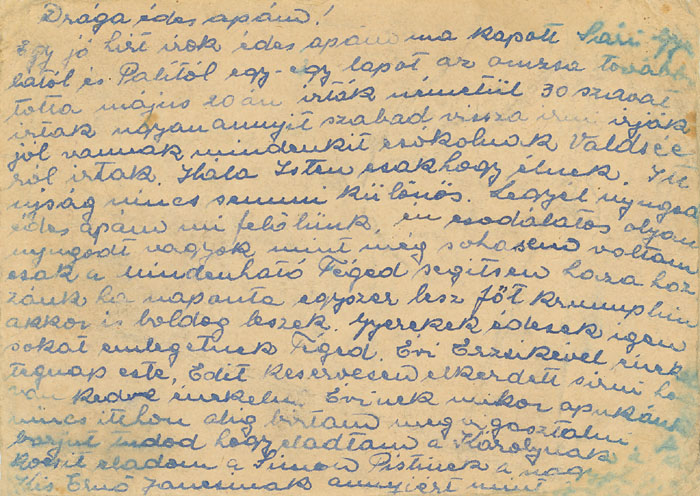 Drága édes apám!
Egy jó hírt írok édes apám ma kapott Sári
től és Palitól egy-egy lapot az omzsa továbbí
totta május 20 án írták németül 30 szavat
írtak ugyan annyit szabad vissza írni írják
jól vannak mindenkit csókolnak Valdsee
ról írtak. Hála Isten csakhogy élnek. Itt
nyság nincs semmi különös. Legyél nyugodt
édes apám mi felölünk, én csodálatos olyan
nyugodt vagyok mint még sohasem voltam
csak a mindenható Téged segitsen haza hoz
zánk ha naponta egyszer lesz főt krumplim
akkor is boldog leszek. Gyerekek édesek igen
sokat emlegetnek Téged. Évi Erzsikével énekel
tegnap este, Edit keservesen elkezdett sirni ho
van kedve énekelni Évinek mikor apukánk
nincs itthon alig birtam meg vigasztalni
borjut tudod hogy eladtam a Károlynak
kocsit eladom a Simon Pistinek a nagy
Kis Ernő Jancsinak annyiért mint